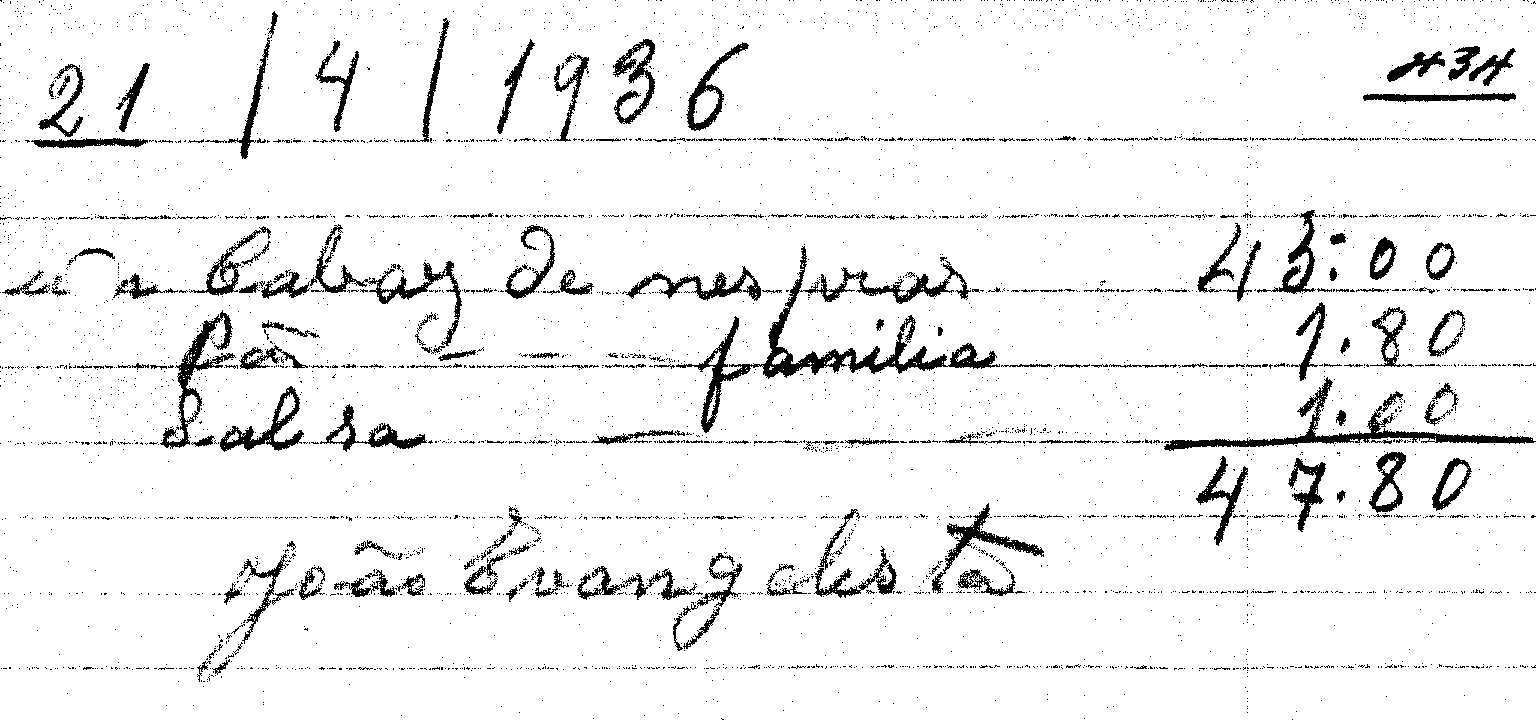 21 / 4 / 1936 434
um Cabaz de nespras 45.00
Pão - - - familia 1.80
Salsa - - - 1.00
47.80
João Evangelista